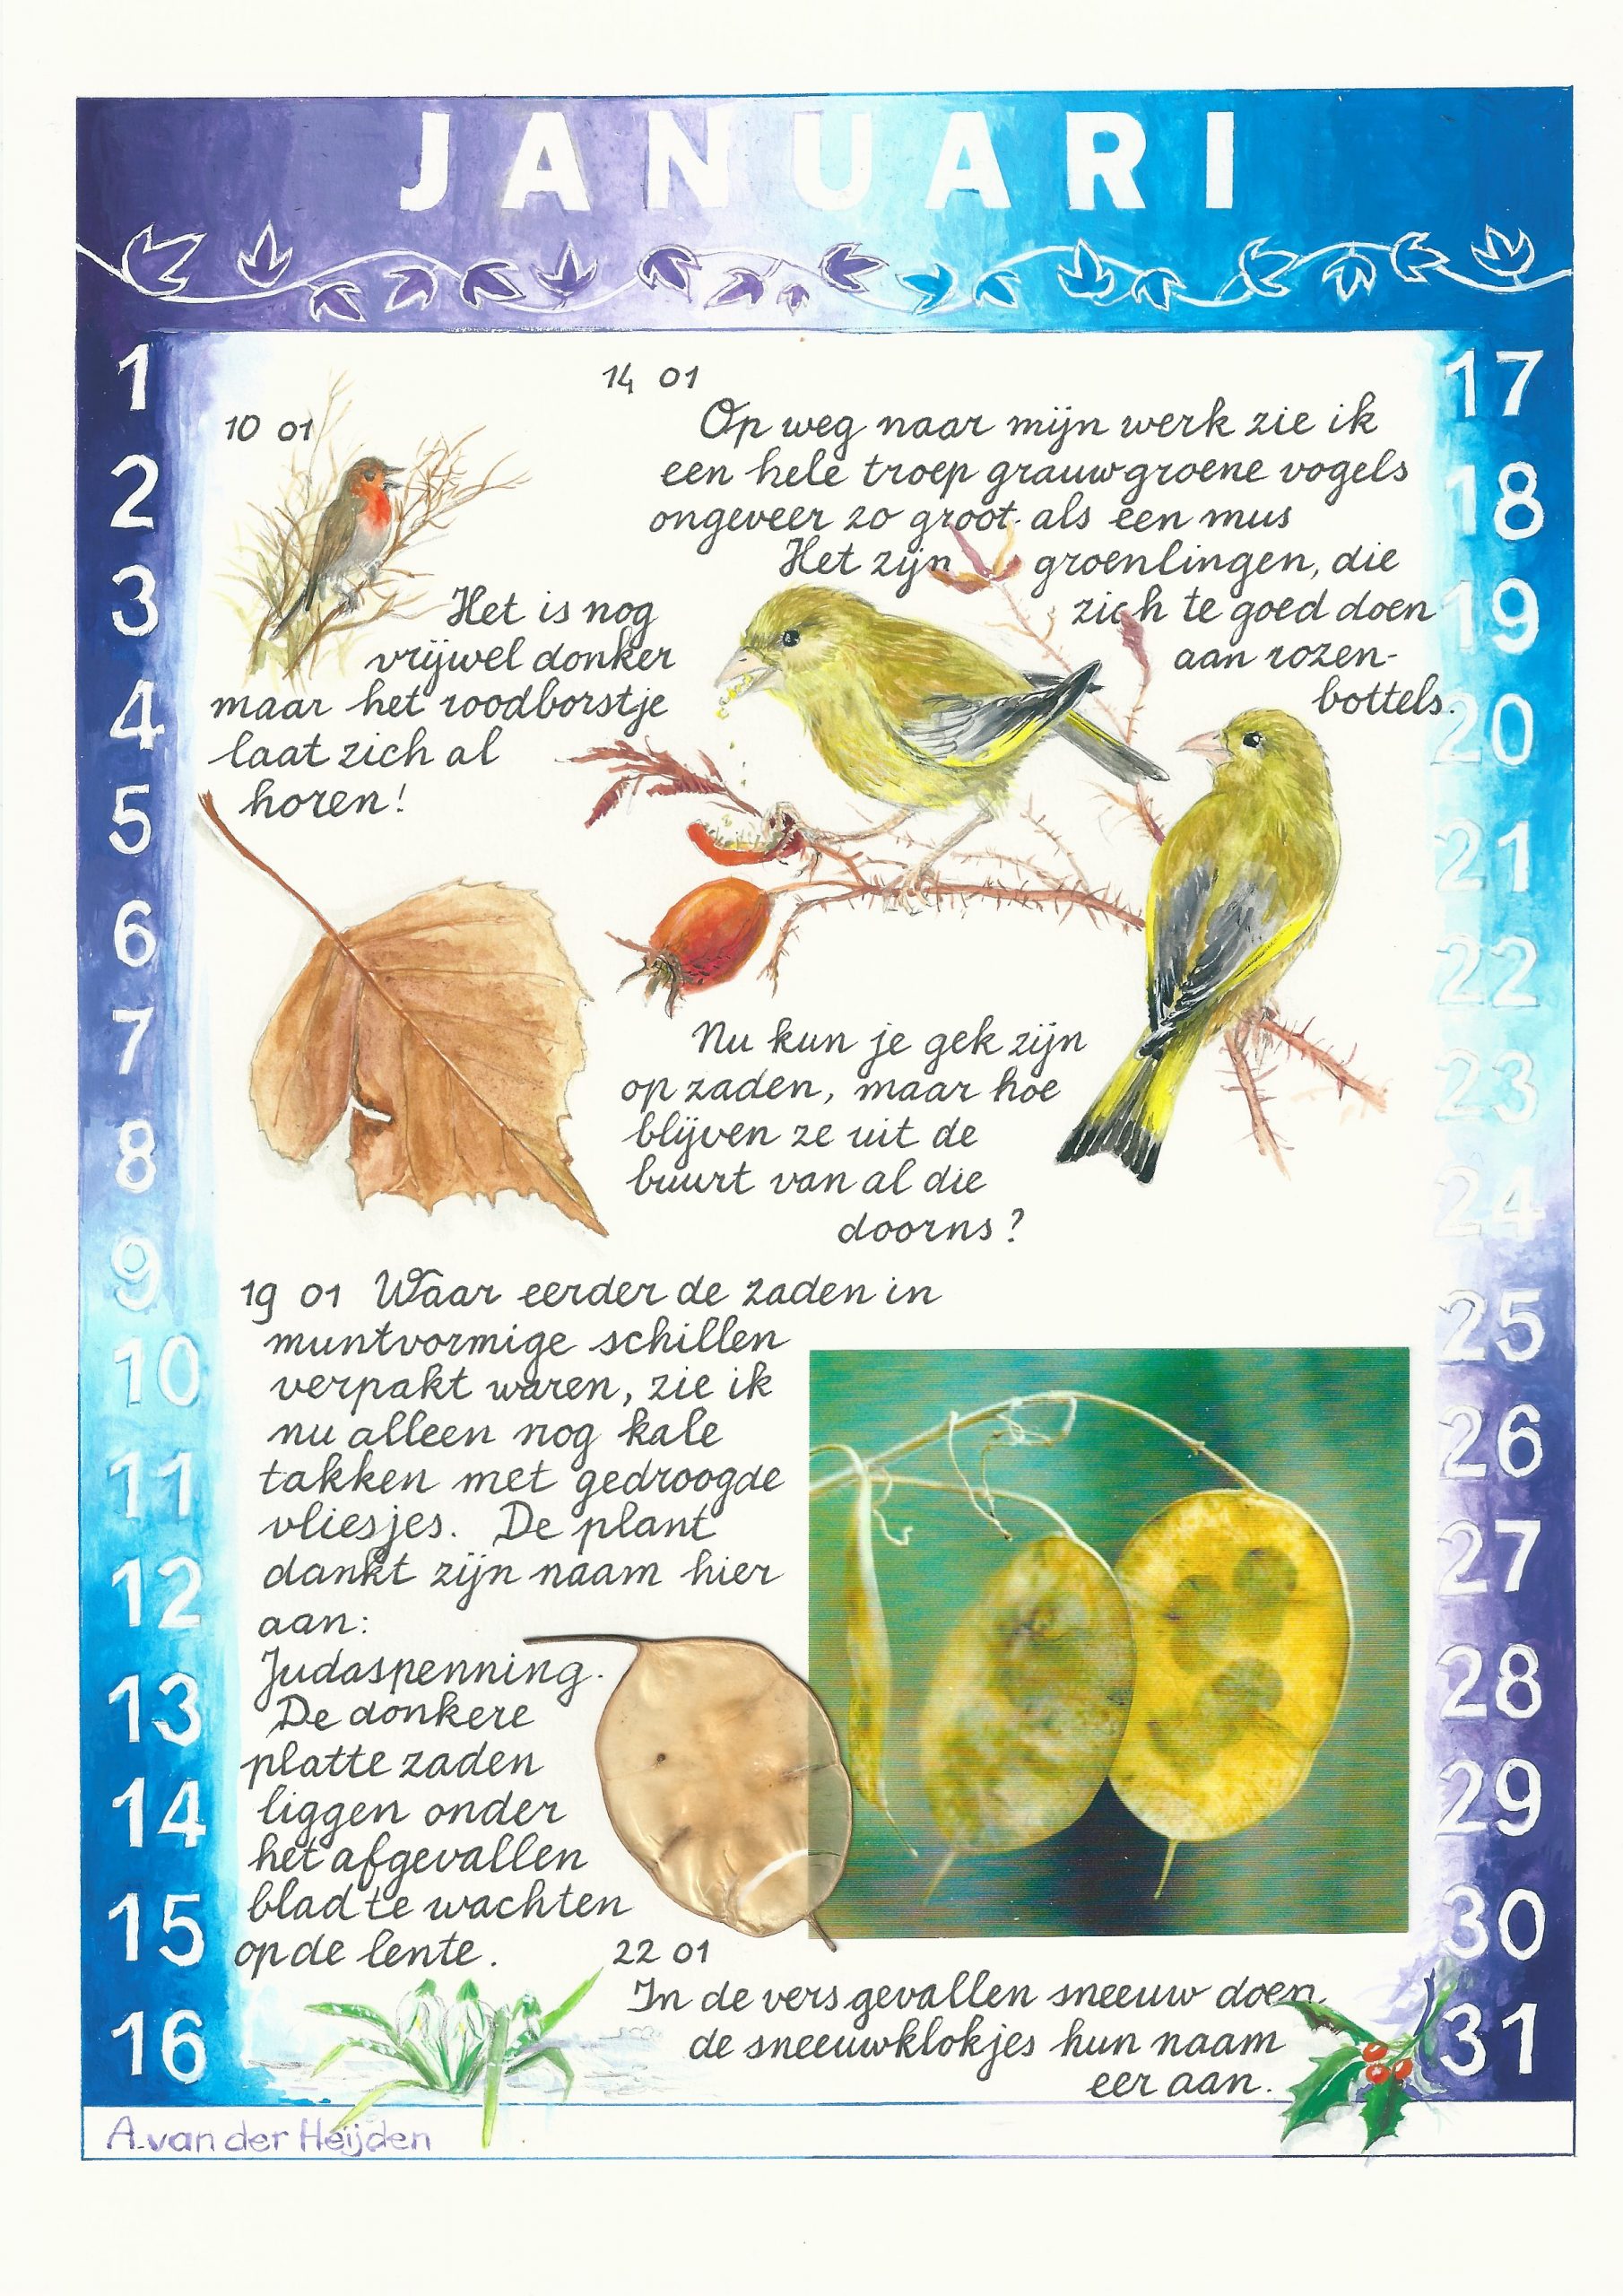 JANUARI
1
2
3
4
5
6
7
8
9
10
11
12
13
14
15
16
10 01
Het is nog
vrijwel donker
maar het roodborstje
laat zich al
horen!
14 01
Op weg naar mijn werk zie ik
een hele troep grauwgroene vogels
ongeveer zo groot als een mus
Het zijn groenlingen, die
zich te goed doen
aan rozen-
bottels.
Nu kun je gek zijn
op zaden, maar hoe
blijven ze uit de
buurt van al die
doorns?
19 01 Waar eerder de zaden in
muntvormige schillen
verpakt waren, zie ik
nu alleen nog kale
takken met gedroogde
vliesjes. De plant
dankt zijn naam hier
aan:
Judaspenning.
De donkere
platte zaden
liggen onder
het afgevallen
blad te wachten
op de lente.
22 01
In de vers gevallen sneeuw doen
de sneeuwklokjes hun naam
eer aan.
17
18
19
20
21
22
23
24
25
26
27
28
29
30
31
A. van der Heijden